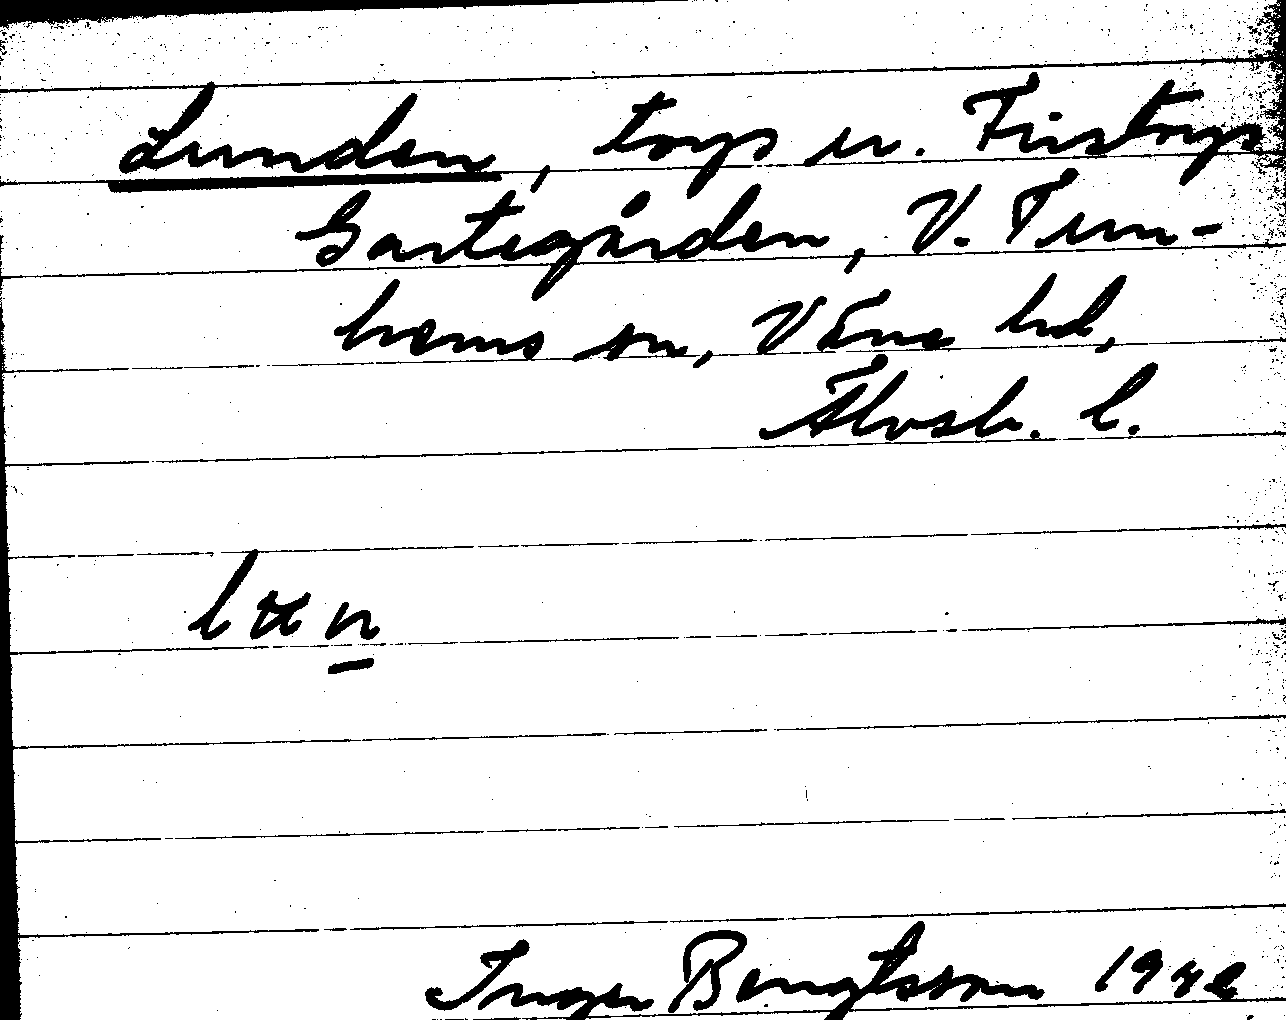 Lunden, torp u. Fristorps
Gastegården, V. Tun-
hems sn, Väne hd,
Älvsb. l.
lun
Inger Bengtsson 1942